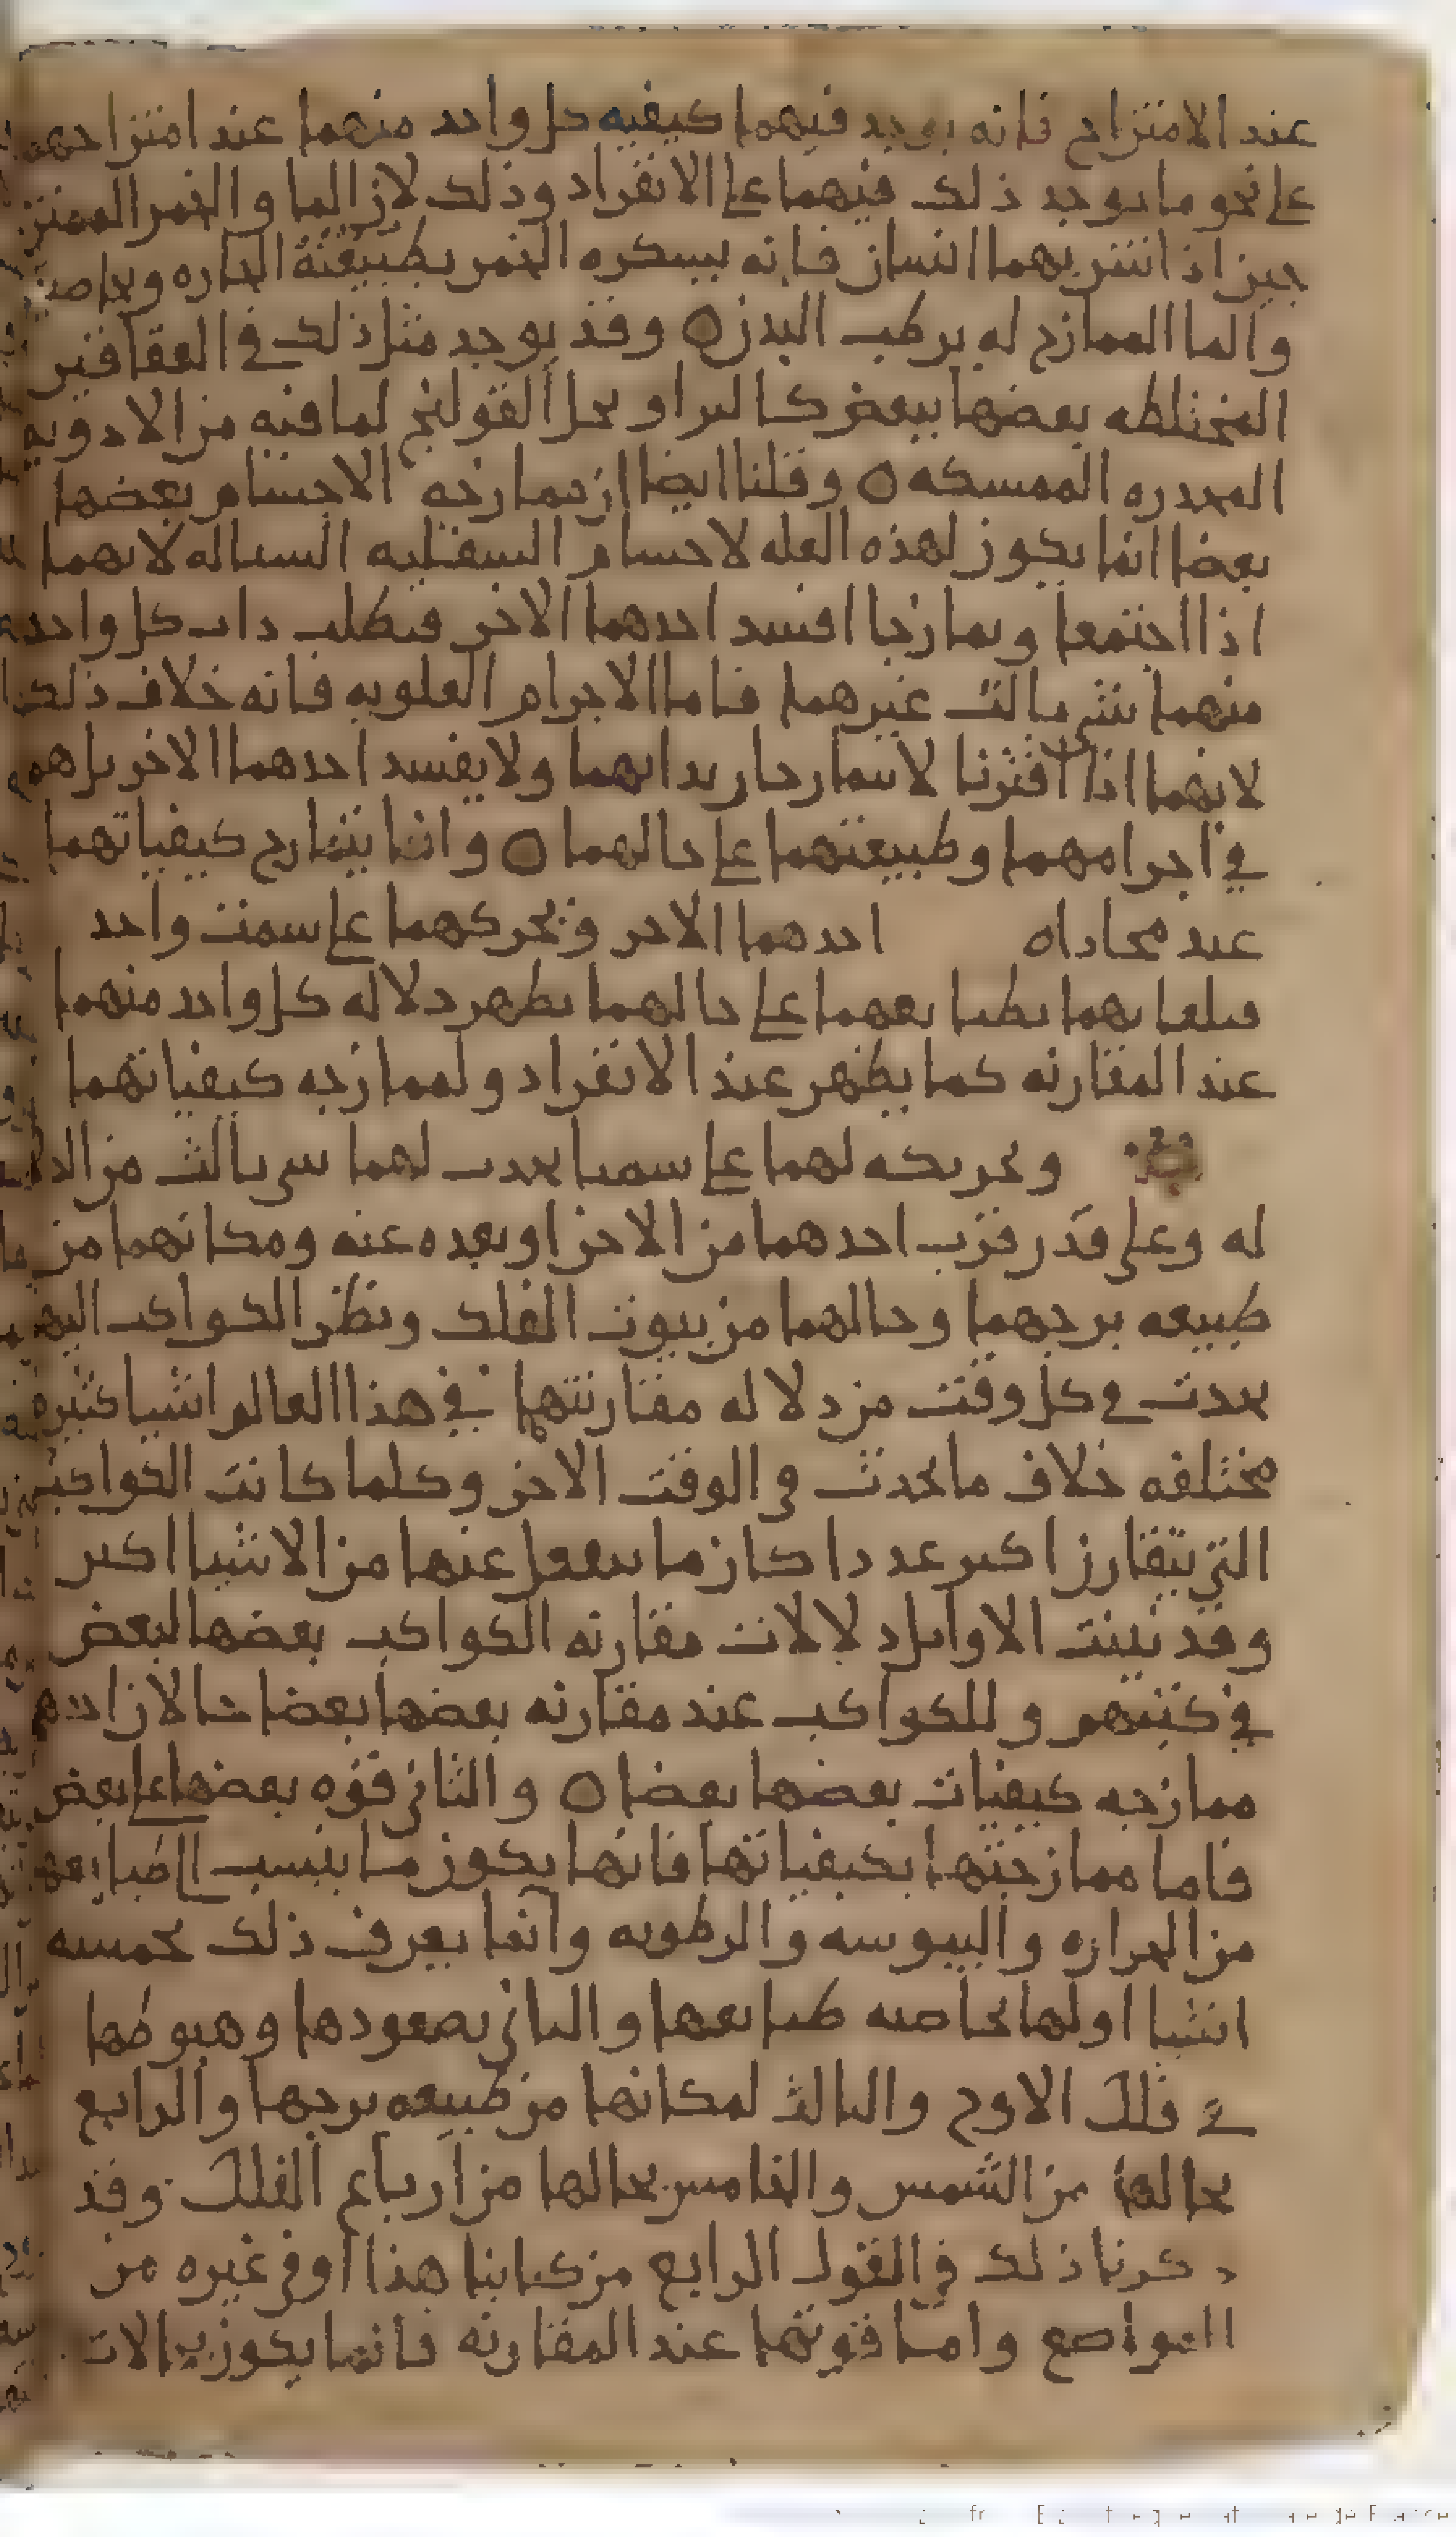 عند الامتزاج فانه يوجد فيهما كيفيه كل واحد منهما عند امتزاجهما
على نحو ما يوجد ذلك فيهما على الانفراد وذلك لان الما والخمر الممتز
جين اذا شربهما انسان فانه يسكره الخمر بطبيعته الحاره وبخاصيته
والما الممازج له يرطب البدن ٥ وقد يوجد مثل ذلك في العقاقير
المختلطه بعضها ببعض يحل القولنج لما فيه من الادويه
المخدره الممسكه ٥ وقلنا ايضا ان ممازجه الاجسام بعضها
بعضا انما يكون لهذه العله لاجسام السفليه السياله لانهما
اذا اجتمعا وتمازجا افسد احدهما الاخر فبطلت ذات كل واحد
منهما شي ثالث غيرهما فاما الاجرام العلويه فانه خلاف ذلك
لانهما اذا اقترنا لا يتمازجان بذاتهما ولا يفسد احدهما الاخر بل هم
في اجرامهما وطبيعتهما على حالهما ٥ وانما يتمازج كيفياتهما
عند محاذاه احدهما الاخر وتحركهما على سمت واحد
فبلقايهما بطبايعهما على حالهما يظهر دلاله كل واحد منهما
عند المقارنه كما يظهر عند الانفراد ولممازجه كيفياتهما
وتحريكه لهما على سمت يحدث لهما شي ثالث من الدلا
له وعلى قدر قرب احدهما من الاخر او بعده عنه ومكانهما من
طبيعه برجهما وحالهما من بيوت الفلك ونظر الكواكب اليهما
يحدث في كل وقت من دلاله مقارنتهما في هذا العالم اشيا كثيره
مختلفه خلاف ما يحدث في الوقت الاخر وكلما كانت الكواكب
التي تتقارن اكثر عددا كان ما ينفعل عنها من الاشيا اكثر
وقد بينت الاوايل دلالات مقارنه الكواكب بعضها لبعض
في كتبهم وللكواكب عند مقارنه بعضها بعضا حالان احدهما
ممازجه كيفيات بعضها بعضا ٥ والثاني قوه بعضها على بعض
فاما ممازجتها بكيفياتها فانها يكون ما ينسب الى طبايعها
من الحراره واليبوسه والرطوبه وانما يعرف ذلك بخمسه
اشيا اولها بخاصيه طبايعها والثاني بصعودها وهبوطها
في فلك الاوج والثالث لمكانها من طبيعه برجها والرابع
بحالها من الشمس والخامس بحالها من ارباع الفلك وقد
ذكرنا ذلك في القول الرابع من كتابنا هذا او في غيره من
المواضع واما قوتهما عند المقارنه فانما يكون بحالات